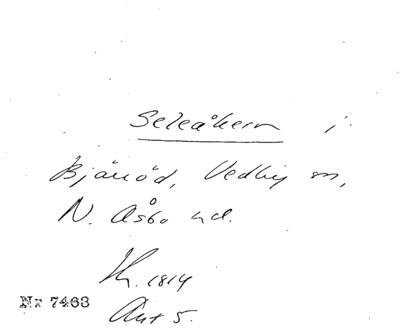 Seleåkern i
Bjäröd, Vedby sn,
N. Åsbo hd.
Kr. 1814
Akt 5.
Nr 7463